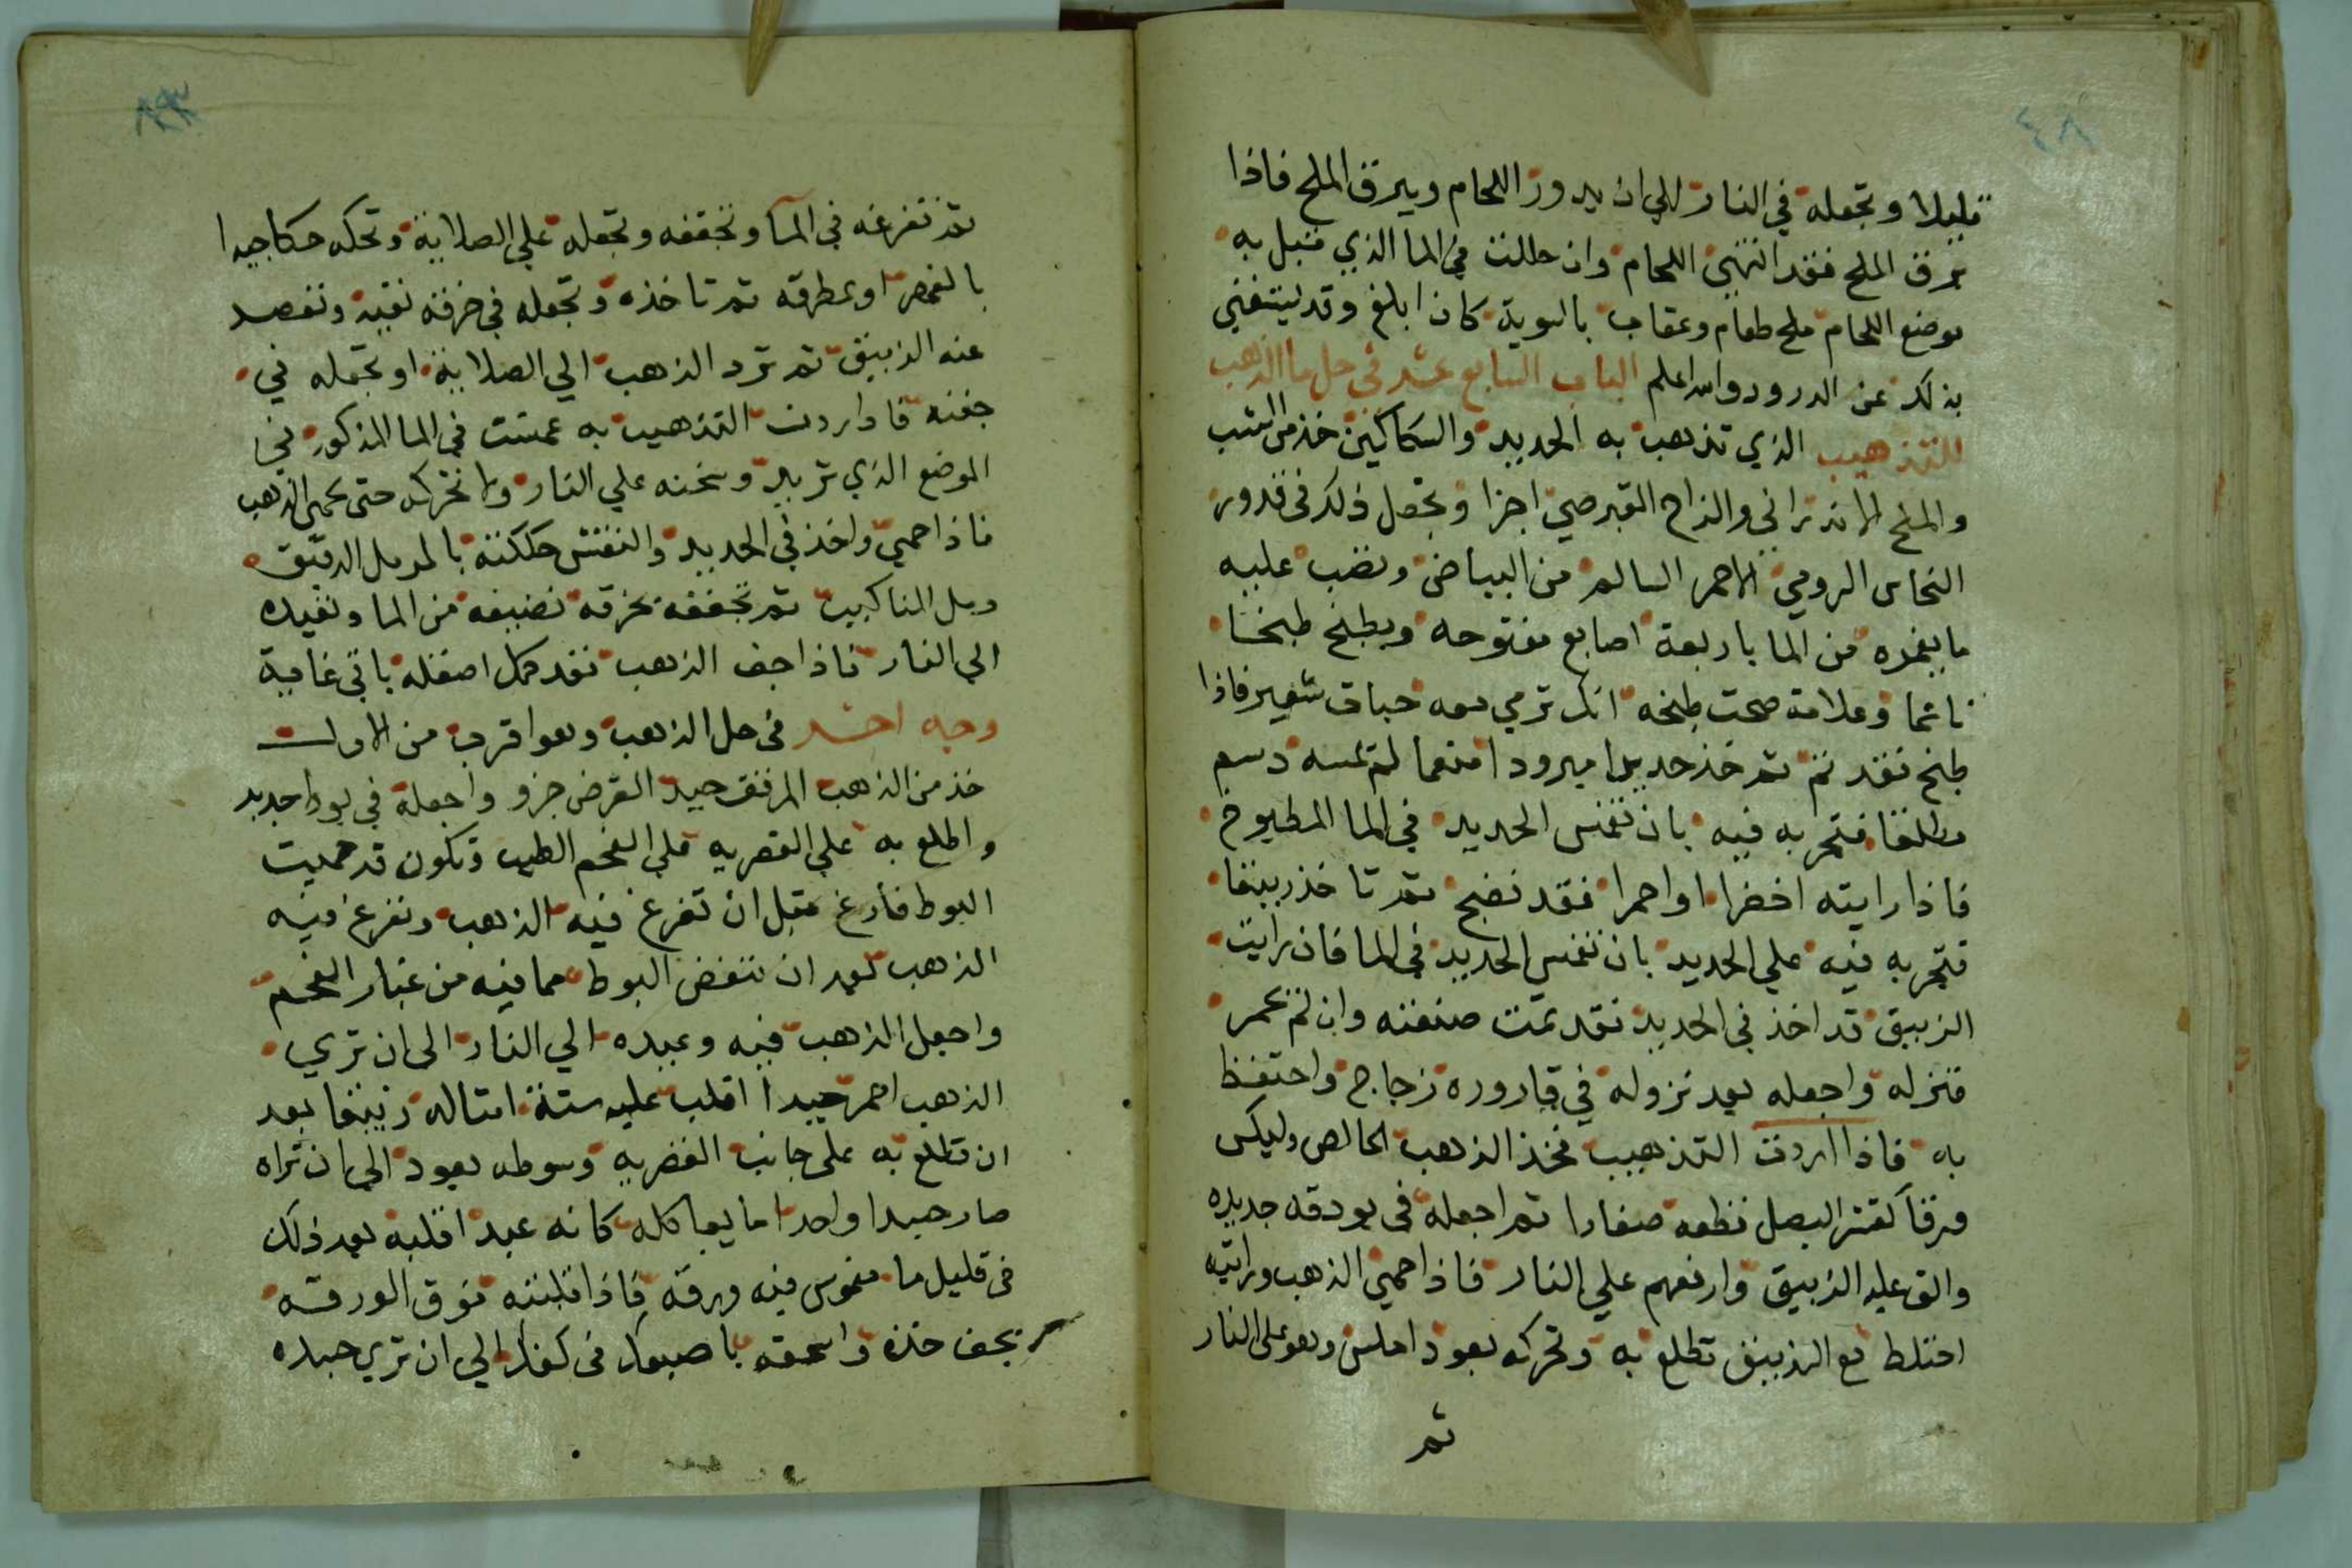 ٤٨
قليلا وتجعله في النار الي ان يدور اللحام ويبرق الملح فاذا
برق الملح فقد انتهى اللحام وان حللت في الما الذي تبل به
موضع اللحام ملح طعام وعقاب بالسوية كان ابلغ وقد يستغني
بذلك عن الدرور والله اعلم الباب السابع عشر في حل ما الذهب
للتذهيب الذي تذهب به الحديد والسكاكين خذ من الشب
والملح الاندراني والزاج القبرصي اجزا وتجعل ذلك في قدور
النحاس الرومي الاحمر السالم من البياض وتصب عليه
ما يغمره من الما باربعة اصابع مفتوحه ويطبخ طبخا
ناعما وعلامة صحت طبخه انك ترمي معه حبات شعير فاذا
طبخ فقد تم ثم خذ حديدا مبرودا منعما لم تمسه دسم
مطلقا فتجربه فيه بان تغمس الحديد في الما المطبوخ
فاذا رايته اخضرا او احمرا فقد نضج ثم تاخذ زيبقا
فتجربه فيه علي الحديد بان تغمس الحديد في الما فان رايت
الزيبق قد اخذ في الحديد فقد تمت صنعته وان لم يحمر
فتزله واجعله بعد نزوله في قاروره زجاج واحتفظ
به فاذا اردت التذهيب فخذ الذهب الخالص وليكن
ورقا كقشر البصل قطعه صغارا ثم اجعله في بودقه جديده
والق عليه الزيبق وارفعهم علي النار فاذا حمي الذهب ورايته
اختلط مع الزيبق تطلع به وتحركه بعود املس وهو على النار
ثم
ثم تفرغه في المآ وتجففه وتجعله علي الصلاية وتحكه حكا جيدا
بالفهر او بمطرقه ثم تاخذه وتجعله في خرقه نقيه وتفصد
عنه الزيبق ثم ترد الذهب الي الصلاية او تجعله في
جفنه فاذا اردت التذهيب به غمست في الما المذكور في
الموضع الذي تريد وسخنه علي النار ولا تحركه حتى يحمى الذهب
فاذا حمي واخذ في الحديد والنقش حككته بالرمل الدقيق
وبل المناكبيب ثم تجففه بخرقه نضيفه من الما وتعيده
الي النار فاذا جف الذهب فقد كمل اصقله ياتي غاية
وجه اخر في حل الذهب وهو اقرب من الاول
خذ من الذهب المرقق جيد القرض جزو واجعله في بوط جديد
واطلع به علي القصريه علي الفحم الطيب وتكون قد حميت
البوط فارغ قبل ان تفرغ فيه الذهب وتفرغ فيه
الذهب بعد ان تنفض البوط مما فيه من غبار الفحم
واجعل الذهب فيه وعيده الي النار الى ان تري
الذهب احمر جيدا اقلب عليه ستة امثاله زيبقا بعد
ان تطلع به على جانب القصريه وسوطه بعود الي ان تراه
صار جسدا واحدا مايعا كله كانه عبد اقلبه بعد ذلك
في قليل ما مغموس فيه ورقه فاذا قلبته فوق الورقه
يجف خذه واسحقه باصبعك في كفك الي ان تري جسده